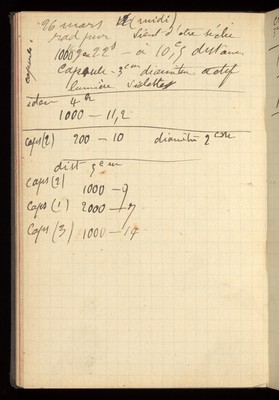 26 mars (midi)
rad pur vient d'être séché
capsule 1
1000 g en 22 s — à 10 c,5 distance
Capsule - 3 cm diamètre actif
lumière violette
idem 4 h
1000 — 11,2
caps (2) 200 — 10 diamètre 2 cm
dist 5 cm
Caps (2)
1000 — 9
Caps (1) 2000 — 17
Caps (3) 1000 — 14